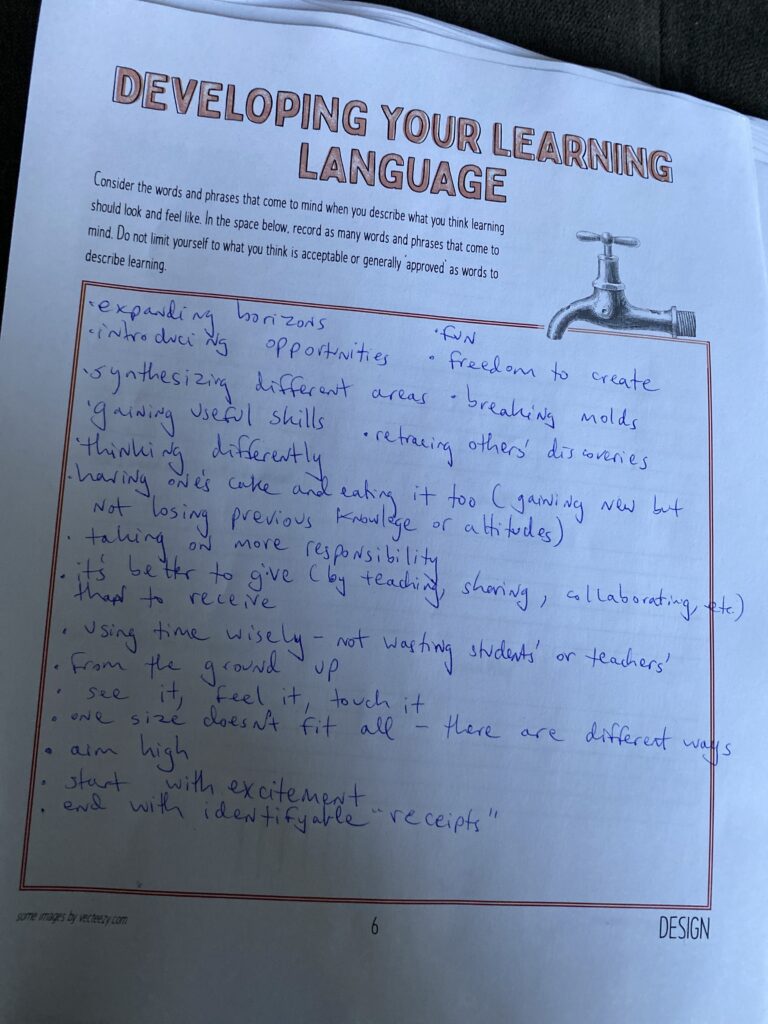 DEVELOPING YOUR LEARNING
LANGUAGE
Consider the words and phrases that come to mind when you describe what you think learning
should look and feel like. In the space below, record as many words and phrases that come to
mind. Do not limit yourself to what you think is acceptable or generally 'approved' as words to
describe learning.
• expanding horizons
• fun
• introducing opportunities
• freedom to create
• synthesizing different areas
• breaking molds
• gaining useful skills
• retracing others' discoveries
• thinking differently
• having one's cake and eating it too (gaining new but
not losing previous knowlege or attitudes)
• taking on more responsibility
• it's better to give (by teaching, sharing, collaborating, etc.)
than to receive
• using time wisely – not wasting students' or teachers'
• from the ground up
• see it, feel it, touch it
• one size doesn't fit all – there are different ways
• aim high
• start with excitement
• end with identifyable "receipts"
some images by vecteezy.com
6
DESIGN